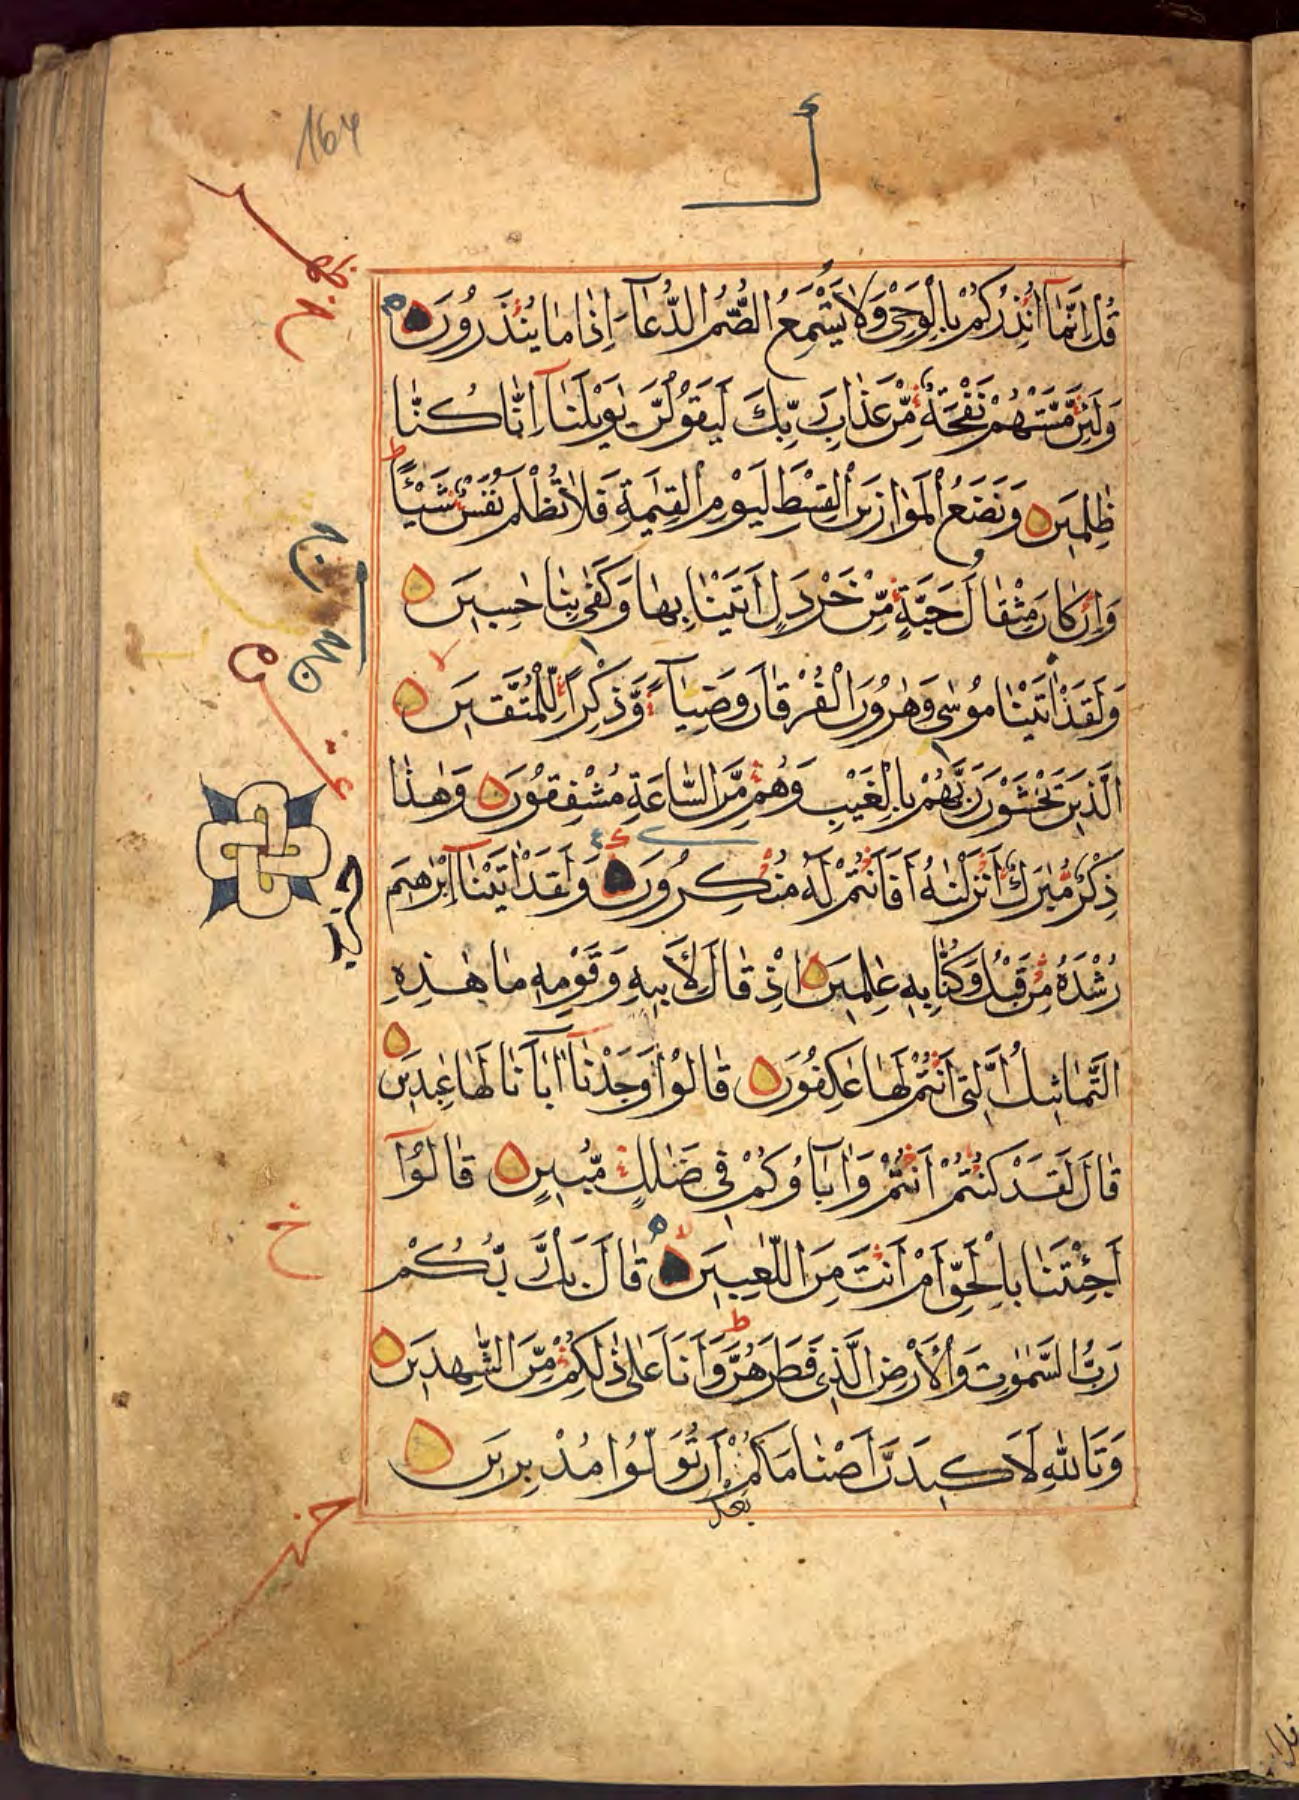 164
قُلْ اِنَّمَآ اُنْذِرُكُمْ بِالْوَحْيِ وَلَا يَسْمَعُ الصُّمُّ الدُّعَآءَ اِذَا مَا يُنْذَرُونَ
وَلَئِنْ مَّسَّتْهُمْ نَفْحَةٌ مِّنْ عَذَابِ رَبِّكَ لَيَقُولُنَّ يٰوَيْلَنَآ اِنَّا كُنَّا
ظٰلِمِينَ وَنَضَعُ الْمَوَازِينَ الْقِسْطَ لِيَوْمِ الْقِيٰمَةِ فَلَا تُظْلَمُ نَفْسٌ شَيْـًٔا ط
وَاِنْ كَانَ مِثْقَالَ حَبَّةٍ مِّنْ خَرْدَلٍ اَتَيْنَا بِهَا وَكَفٰى بِنَا حٰسِبِينَ
وَلَقَدْ اٰتَيْنَا مُوسٰى وَهٰرُونَ الْفُرْقَانَ وَضِيَآءً وَّذِكْرًا لِّلْمُتَّقِينَ
الَّذِينَ يَخْشَوْنَ رَبَّهُمْ بِالْغَيْبِ وَهُمْ مِّنَ السَّاعَةِ مُشْفِقُونَ وَهٰذَا
ذِكْرٌ مُّبٰرَكٌ اَنْزَلْنٰهُ اَفَاَنْتُمْ لَهُ مُنْكِرُونَ وَلَقَدْ اٰتَيْنَآ اِبْرٰهِيمَ
رُشْدَهُ مِنْ قَبْلُ وَكُنَّا بِهِ عٰلِمِينَ اِذْ قَالَ لِاَبِيهِ وَقَوْمِهِ مَا هٰذِهِ
التَّمَاثِيلُ الَّتِي اَنْتُمْ لَهَا عَاكِفُونَ قَالُوا وَجَدْنَآ اٰبَآءَنَا لَهَا عٰبِدِينَ
قَالَ لَقَدْ كُنْتُمْ اَنْتُمْ وَاٰبَآؤُكُمْ فِي ضَلٰلٍ مُّبِينٍ قَالُوٓا
اَجِئْتَنَا بِالْحَقِّ اَمْ اَنْتَ مِنَ اللّٰعِبِينَ قَالَ بَلْ رَّبُّكُمْ
رَبُّ السَّمٰوٰتِ وَالْاَرْضِ الَّذِي فَطَرَهُنَّ ط وَاَنَا عَلٰى ذٰلِكُمْ مِّنَ الشّٰهِدِينَ
وَتَاللّٰهِ لَاَكِيدَنَّ اَصْنَامَكُمْ اَنْ تُوَلُّوا مُدْبِرِينَ
بَعْدَ